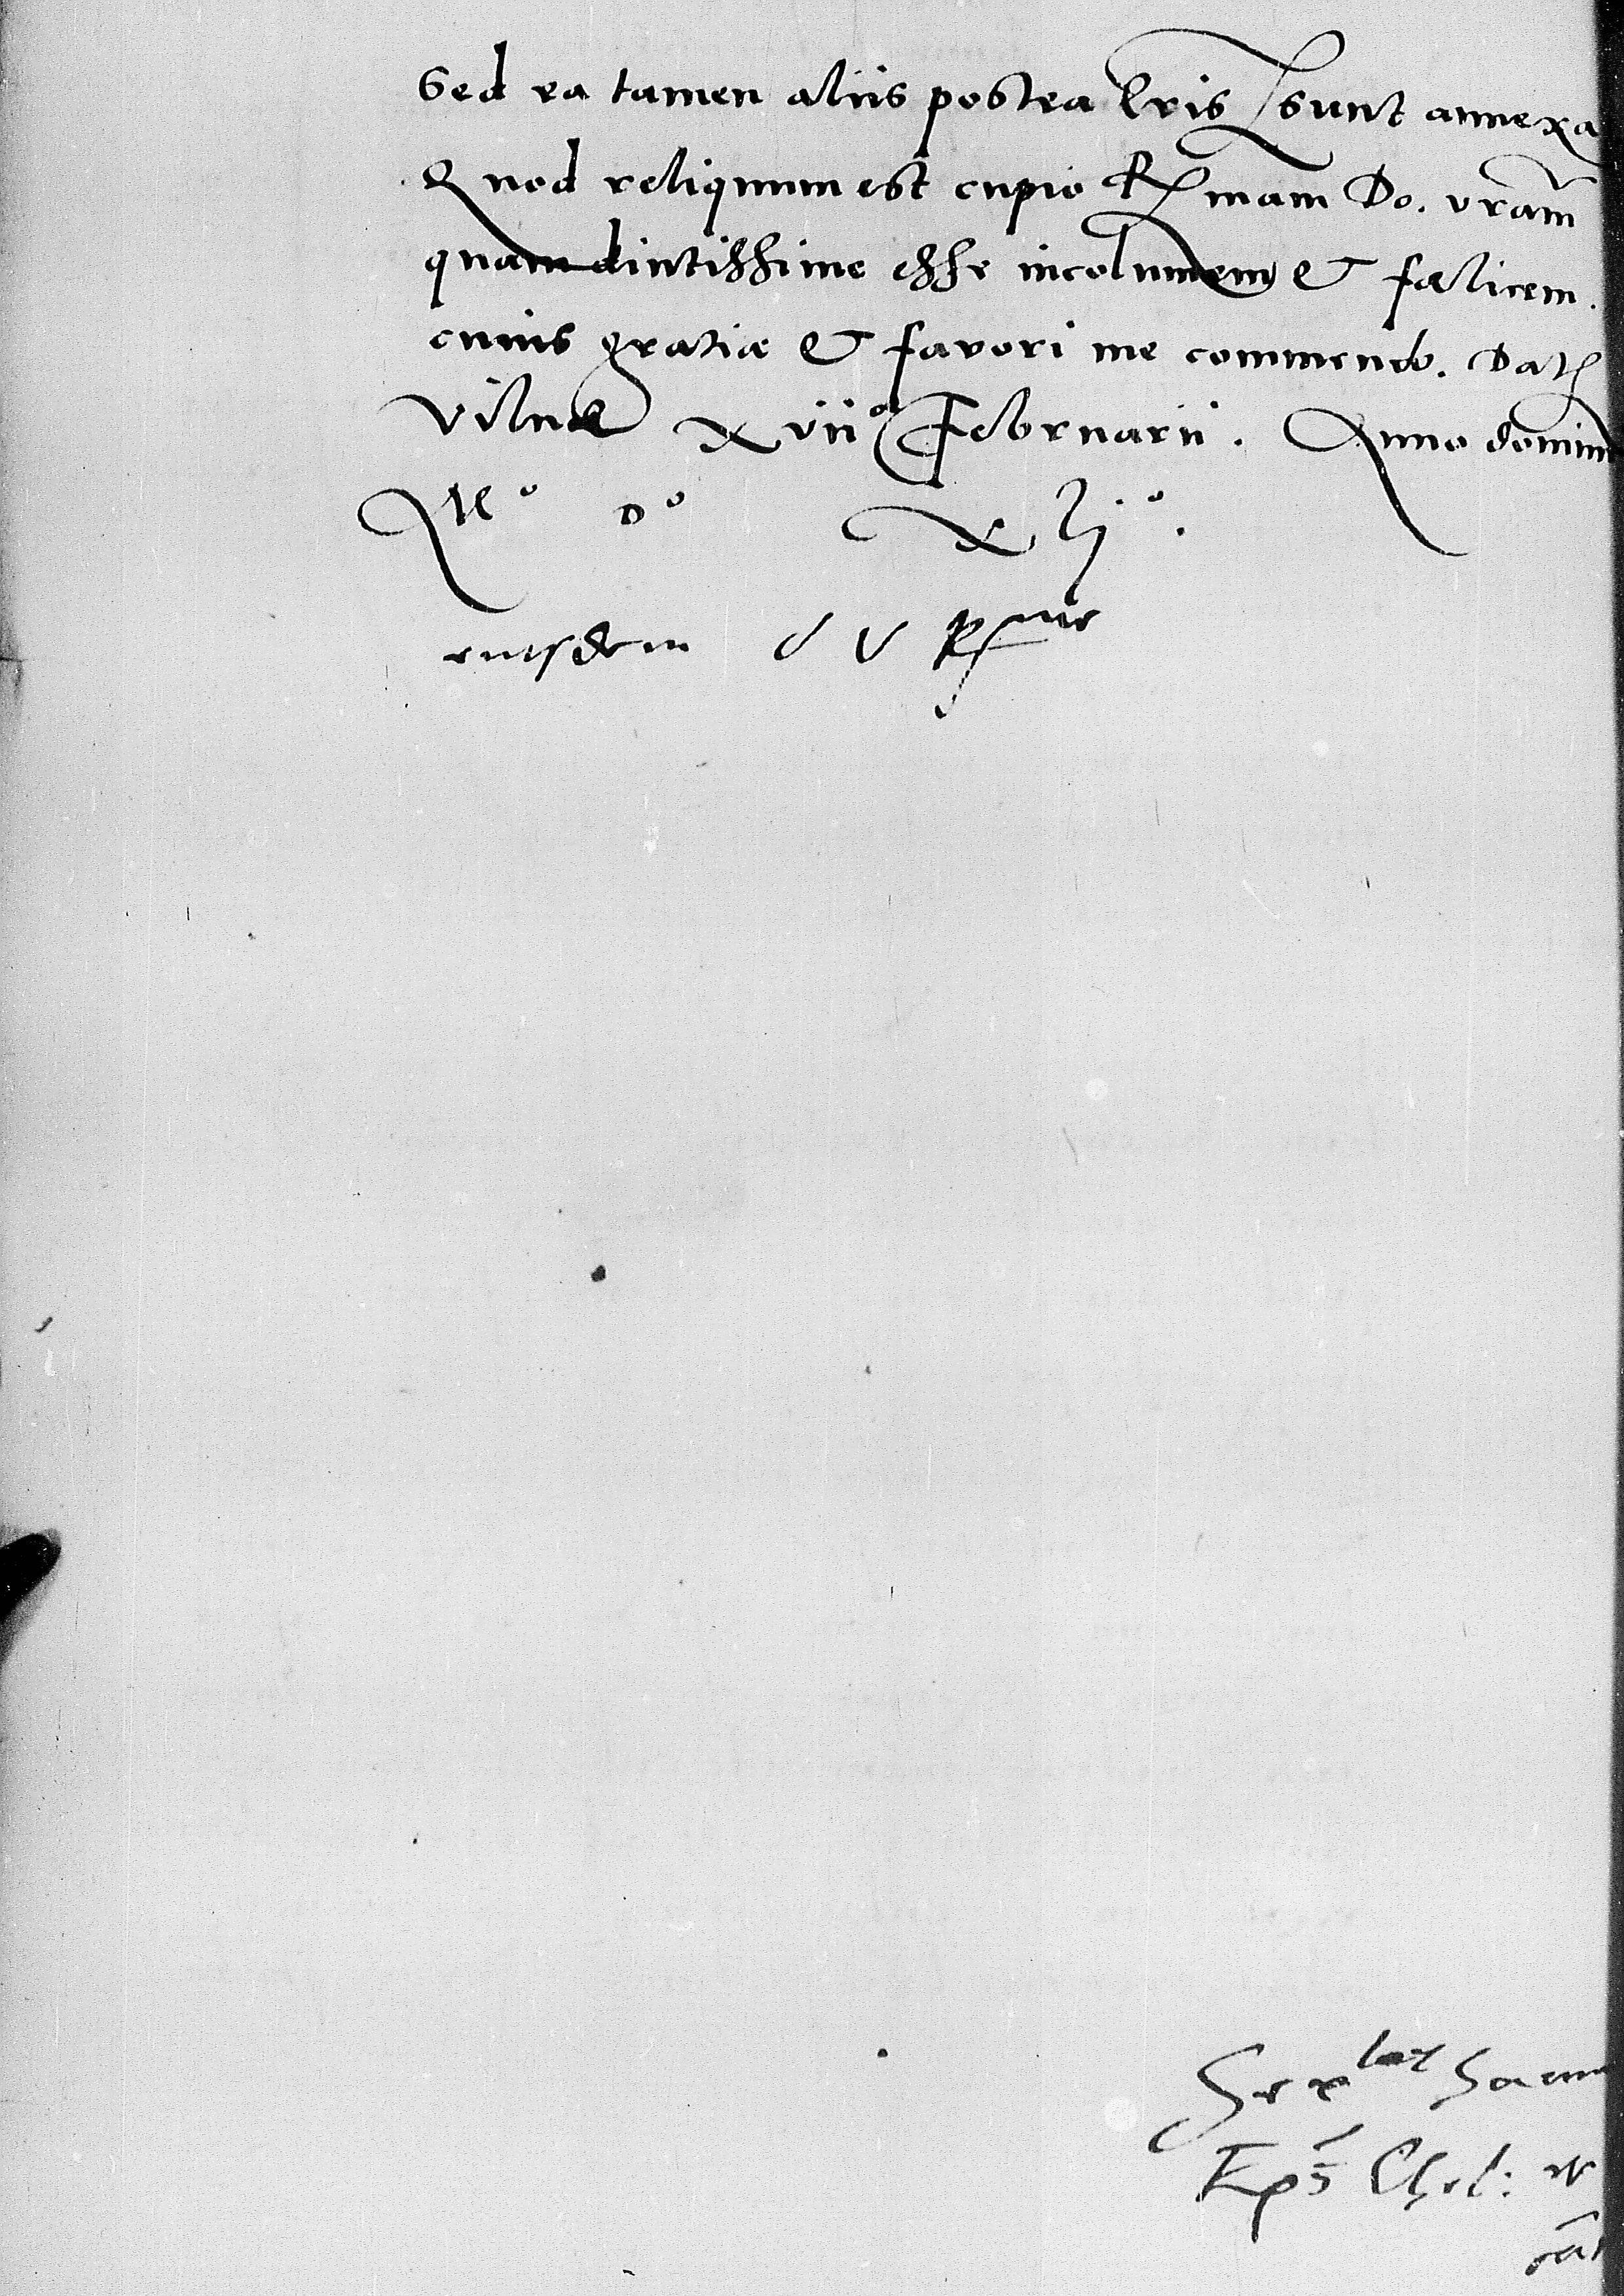 Sed ea tamen aliis postea lris sunt annexa
Quod reliquum est cupio R mam Do. vram
quamdiutissime esse incolumem et fælicem.
cuius gratiæ et favori me commendo. Dat
Vilnæ xvii° Februarii. Anno domini
M° D° xlj°.
eiusdem d v R me
Eps Chel: